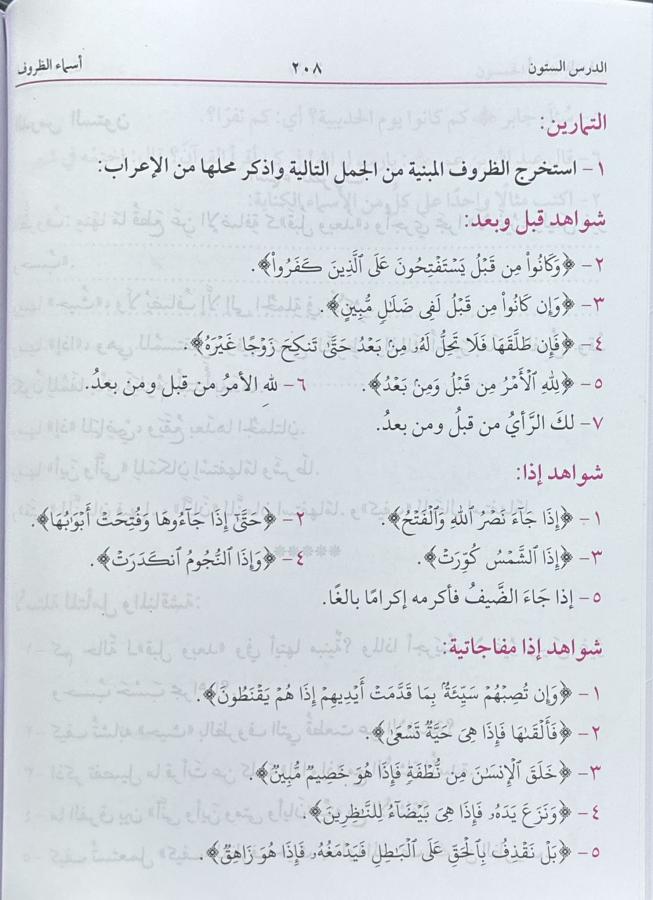 الدرس الستون ٢٠٨ أسماء الظروف
التمارين:
١- استخرج الظروف المبنية من الجمل التالية واذكر محلها من الإعراب:
شواهد قبل وبعد:
٢- ﴿وَكَانُواْ مِن قَبْلُ يَسْتَفْتِحُونَ عَلَى ٱلَّذِينَ كَفَرُواْ﴾.
٣- ﴿وَإِن كَانُواْ مِن قَبْلُ لَفِى ضَلَٰلٖ مُّبِينٍ﴾.
٤- ﴿فَإِن طَلَّقَهَا فَلَا تَحِلُّ لَهُۥ مِنۢ بَعْدُ حَتَّىٰ تَنكِحَ زَوْجًا غَيْرَهُۥ﴾.
٥- ﴿لِلَّهِ ٱلْأَمْرُ مِن قَبْلُ وَمِنۢ بَعْدُ﴾. ٦- للهِ الأمرُ من قبل ومن بعدُ.
٧- لكَ الرَّأيُ من قبلُ ومن بعدُ.
شواهد إذا:
١- ﴿إِذَا جَآءَ نَصْرُ ٱللَّهِ وَٱلْفَتْحُ﴾. ٢- ﴿حَتَّىٰٓ إِذَا جَآءُوهَا وَفُتِحَتْ أَبْوَٰبُهَا﴾.
٣- ﴿إِذَا ٱلشَّمْسُ كُوِّرَتْ﴾. ٤- ﴿وَإِذَا ٱلنُّجُومُ ٱنكَدَرَتْ﴾.
٥- إذا جَاءَ الضَّيفُ فأكرمه إكرامًا بالغًا.
شواهد إذا مفاجاتية:
١- ﴿وَإِن تُصِبْهُمْ سَيِّئَةُۢ بِمَا قَدَّمَتْ أَيْدِيهِمْ إِذَا هُمْ يَقْنَطُونَ﴾.
٢- ﴿فَأَلْقَىٰهَا فَإِذَا هِىَ حَيَّةٌ تَسْعَىٰ﴾.
٣- ﴿خَلَقَ ٱلْإِنسَٰنَ مِن نُّطْفَةٍ فَإِذَا هُوَ خَصِيمٌ مُّبِينٌ﴾.
٤- ﴿وَنَزَعَ يَدَهُۥ فَإِذَا هِىَ بَيْضَآءُ لِلنَّٰظِرِينَ﴾.
٥- ﴿بَلْ نَقْذِفُ بِٱلْحَقِّ عَلَى ٱلْبَٰطِلِ فَيَدْمَغُهُۥ فَإِذَا هُوَ زَاهِقٌ﴾.